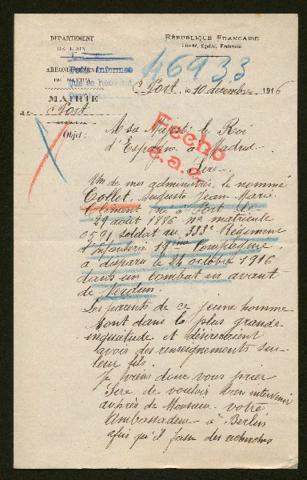 DEPARTEMENT
DE L'AIN
RÉPUBLIQUE FRANÇAISE
Liberté, Egalité, Fraternité
46933
MAIRIE
Port
Port, le 10 décembre 1916
Objet :
A sa Majesté le Roi
d'Espagne à Madrid
Fecho
Sire
Un de mes administrés, le nommé
Collet, Auguste Jean Marie
Clément né à Port le
29 août 1886 no matricule
soldat au 333e Régiment
d'Infanterie 19ème Compagnie
a disparu le 24 octobre 1916
dans un combat en avant
de Verdun.
Les parents de ce jeune homme
sont dans la plus grande
inquiétude et désireraient
avoir des renseignements sur
leur fils
Je viens donc vous prier
Sire de vouloir bien intervenir
auprès de Monsieur votre
Ambassadeur à Berlin
afin qu'il fasse des recherches